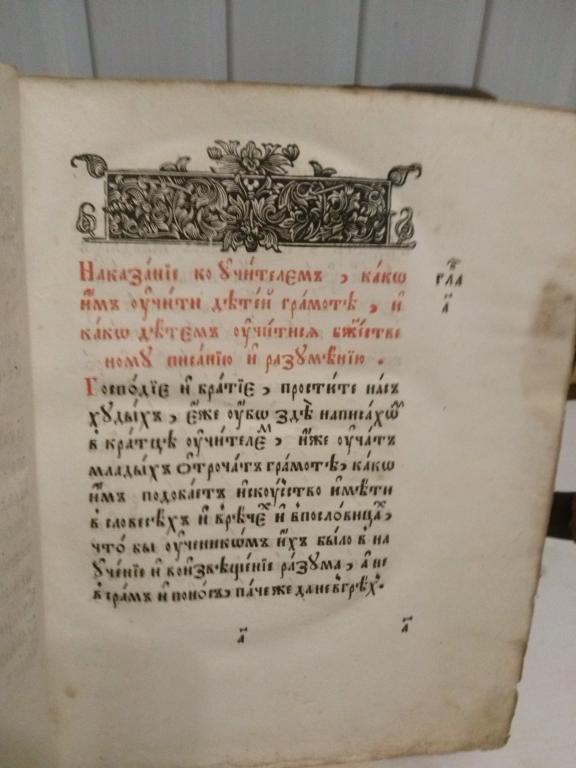 Наказа́нїе ко ᲂу҆чи́телемъ, ка́кѡ
и҆̀мъ ᲂу҆чи́ти дѣте́й гра́мотѣ, и҆
ка́кѡ дѣ́темъ ᲂу҆чи́тисѧ бж҃е́стве
ному писа́нїю и҆ разꙋмѣ́нїю.
гла҃
а҃
Госпо́дїе и҆ бра́тїе, прости́те на́съ
хꙋды́хъ, є҆́же ᲂу҆́бѡ здѣ̀ написа́хѡⷨ
в кра́тцѣ ᲂу҆чи́телеⷨ, и҆́же ᲂу҆ча́тъ
млады́хъ ѻ҆троча́тъ гра́мотѣ, ка́кѡ
и҆̀мъ подоба́етъ и҆скꙋ́сство и҆мѣ́ти
в словесѣ́хъ и҆ в рѣ́чеⷯ и҆ в посло́вицаⷯ,
что́ бы ᲂу҆ченикѡ́мъ и҆́хъ бы́ло в на
ᲂуче́нїе и҆ во и҆звѣще́нїе ра́зꙋма, а҆ не
в сра́мъ и҆ поно́съ, па́че же да не в грѣ́хъ.
а҃
а҃